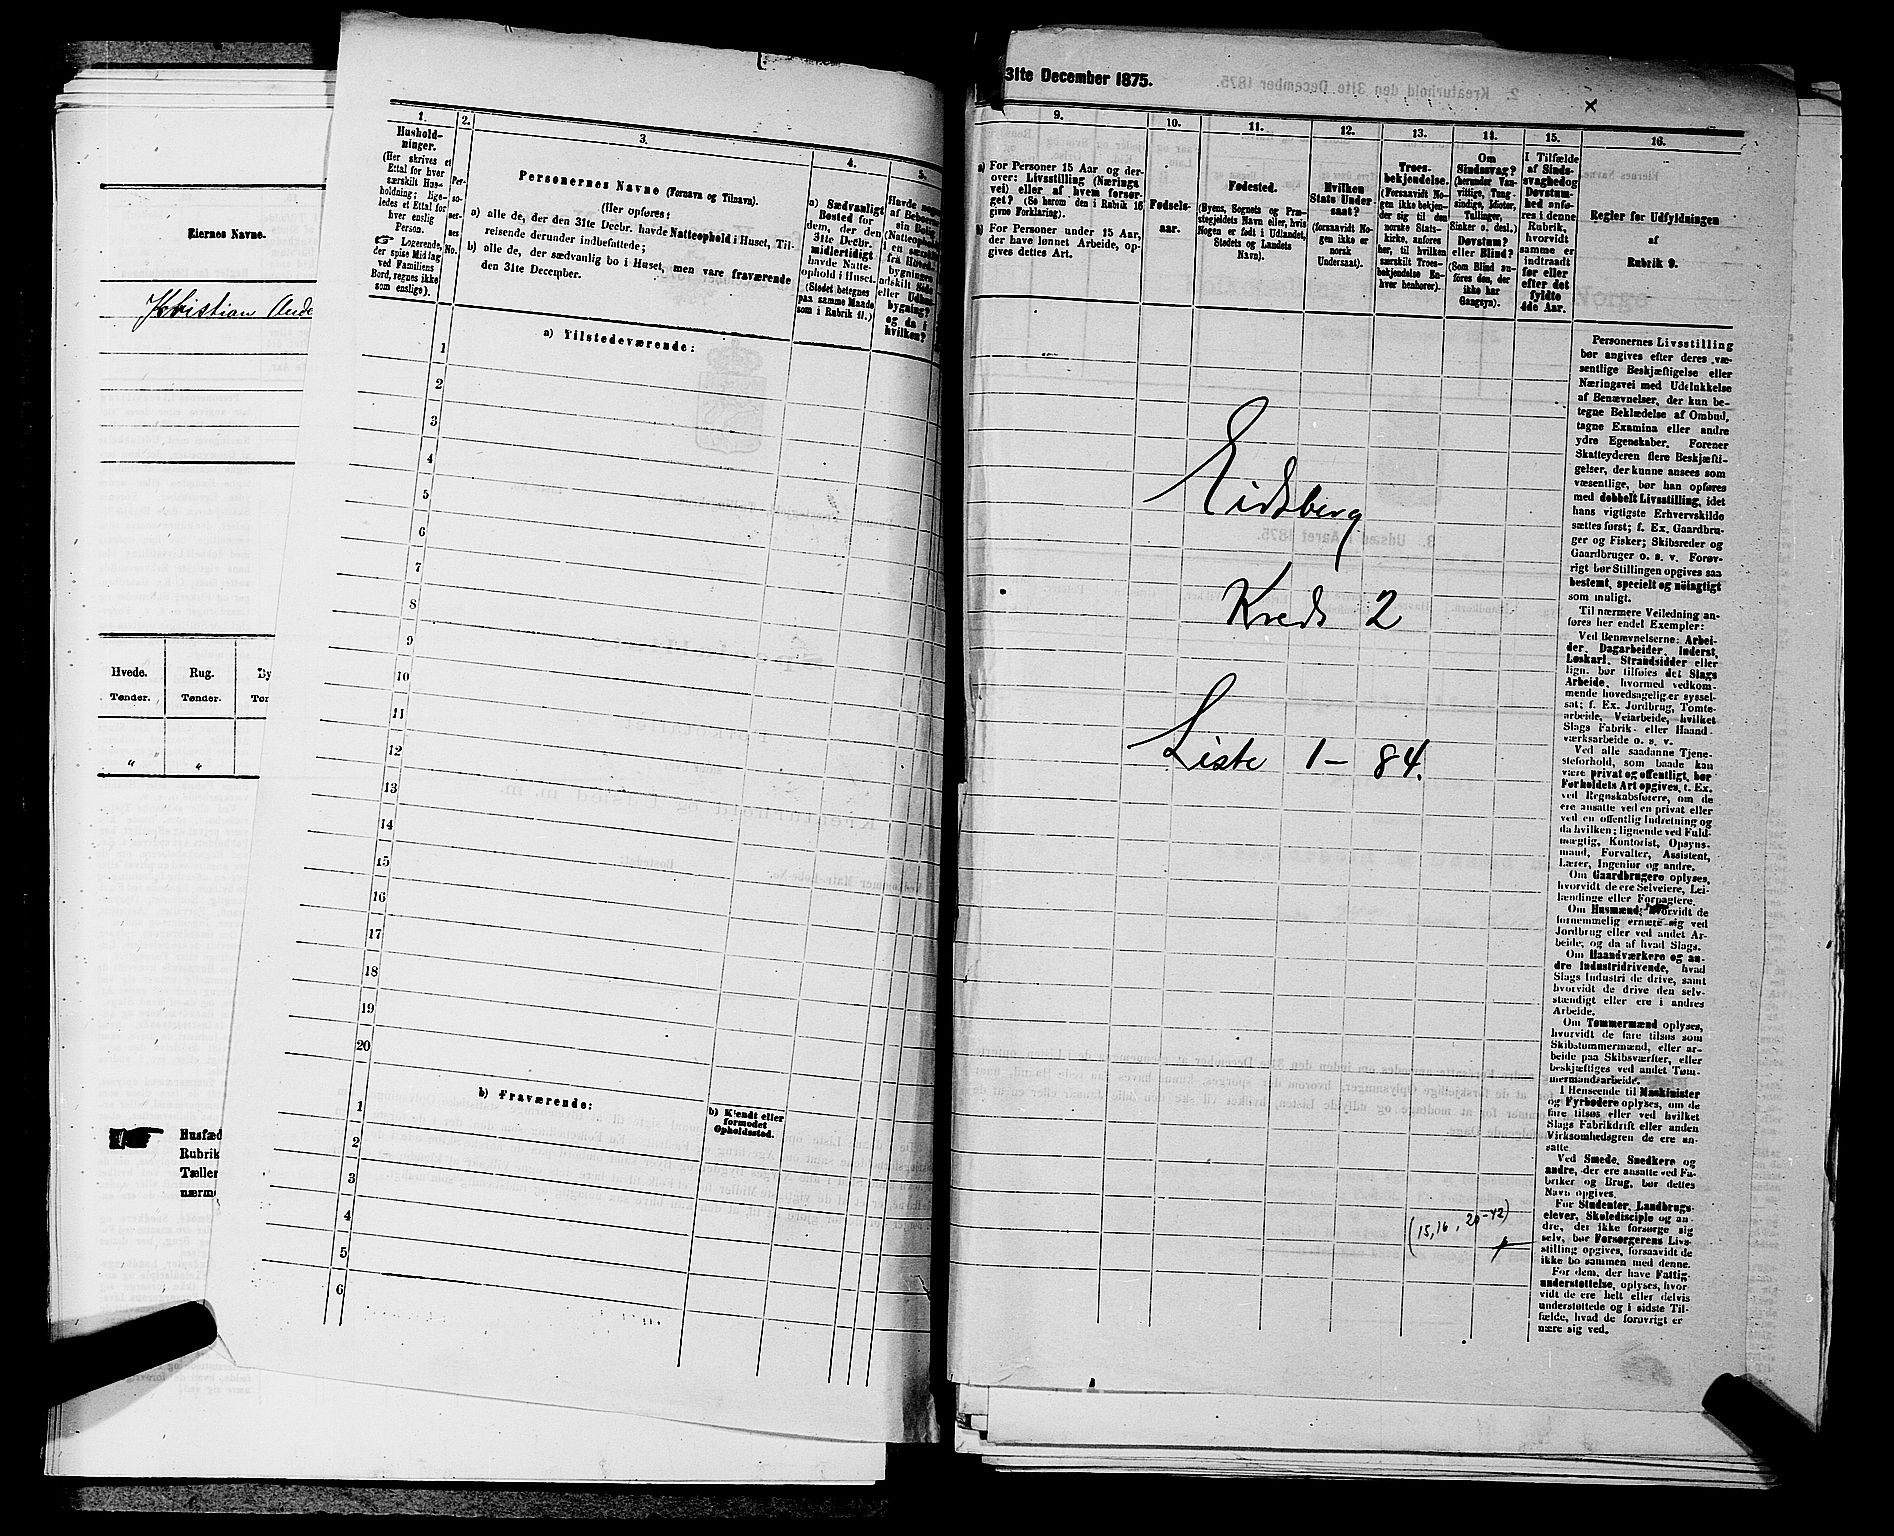 Eiernes Navne.
Kristian Ande
Hvede.
Rug.
By
Tønder.
Tønder.
Tør
"
"
"
Husfæd
Rubrik
Tæller
nærme
1.
Hushold-
ninger.
(Her skrives et
Ettal for hver
særskilt Hus-
holdning; lige-
ledes et Ettal for
hver enslig
Person.
Logerende,
der spise Middag
ved Familiens
Bord, regnes ikke
som enslige).
2.
Per-
so-
ner-
nes
No.
3.
Personernes Navne (Fornavn og Tilnavn).
(Her opføres:
a) alle de, der den 31te Decbr. havde Natteophold i Huset, Til-
reisende derunder indbefattede;
b) alle de, der sædvanlig bo i Huset, men vare fraværende
den 31te December.
4.
a) Sædvanligt
Bosted for
dem, der den
31te Decbr.
midlertidigt
havde Natte-
ophold i Huset.
(Stedet betegnes
paa samme Maade
som i Rubrik 11.)
5.
a) Tilstedeværende:
1
2
3
4
5
6
7
8
9
10
11
12
13
14
15
16
17
18
19
20
b) Fraværende:
b) Kjendt eller
formodet
Opholdssted.
1
2
3
4
5
6
31te December 1875.
9.
a) For Personer 15 Aar og der-
over: Livsstilling (Nærings-
vei) eller af hvem forsør-
get? (Se herom den i Rubrik 16
givne Forklaring).
b) For Personer under 15 Aar,
der have lønnet Arbeide, op-
gives dettes Art.
10.
Fødsels-
aar.
11.
Fødested.
(Byens, Sognets og Præ-
stegjeldets Navn eller, hvis
Nogen er født i Udlandet,
Stedets og Landets
Navn).
12.
Hvilken
Stats Under-
saat?
(forsaavidt No-
gen ikke er
norsk
Undersaat).
13.
Troes-
bekjendelse.
(Forsaavidt No-
gen ikke bekjen-
der sig til den
norske Stats-
kirke, anføres
her, til hvilken
særskilt Troes-
bekjendelse En-
hver henhører).
14.
Om
Sindssvag?
(herunder Van-
vittige, Tung-
sindige, Idioter,
Tullinger,
Sinker o. desl.)
Døvstum?
eller Blind?
(Som Blind an-
føres den, der
ikke har
Gangsyn).
15.
I Tilfælde
af Sinds-
svaghed og
Døvstum-
hed anfø-
res i denne
Rubrik,
hvorvidt
samme er
indtraadt
før eller
efter det
fyldte
4de Aar.
16.
Regler for Udfyldningen
af
Rubrik 9.
Personernes Livsstilling
bør angives efter deres væ-
sentlige Beskjæftigelse eller
Næringsvei med Udelukkelse
af Benævnelser, der kun be-
tegne Beklædelse af Ombud,
tagne Examina eller andre
ydre Egenskaber. Forener
Skatteyderen flere Beskjæfti-
gelser, der kunne ansees som
væsentlige, bør han opføres
med dobbelt Livsstilling, idet
hans vigtigste Erhvervskilde
sættes først; f. Ex. Gaardbru-
ger og Fisker; Skibsreder og
Gaardbruger o. s. v. Forøv-
rigt bør Stillingen opgives saa
bestemt, specielt og nøiagtigt
som muligt.
Til nærmere Veiledning an-
føres her endel Exempler:
Ved Benævnelserne: Arbei-
der, Dagarbeider, Inderst,
Løskarl, Strandsidder eller
lign. bør tilføies det Slags
Arbeide, hvormed vedkom-
mende hovedsageliger syssel-
sat; f. Ex. Jordbrug, Tomte-
arbeide, Veiarbeide, hvilket
Slags Fabrik- eller Haand-
værksarbeide o. s. v.
Ved alle saadanne Tjene-
steforhold, som baade kan
være privat og offentligt, bør
Forholdets Art opgives, t. Ex.
ved Regnskabsførere, om de
ere ansatte ved en privat eller
ved en offentlig Indretning og
da hvilken; lignende ved Fuld-
mægtig, Kontorist, Opsyns-
mand, Forvalter, Assistent,
Lærer, Ingeniør og andre.
Om Gaardbrugere oplyses,
hvorvidt de ere Selveiere, Lei-
lændinge eller Forpagtere.
Om Husmænd, hvorvidt de
fornemmelig ernære sig ved
Jordbrug eller ved andet Ar-
beide, og da af hvad Slags.
Om Haandværkere og an-
dre Industridrivende, hvad
Slags Industri de drive, samt
hvorvidt de drive den selv-
stændigt eller ere i andres
Arbeide.
Om Tømmermænd oplyses,
hvorvidt de fare tilsøs som
Skibstømmermænd, eller ar-
beide paa Skibsværfter, eller
beskjæftiges ved andet Tøm-
mermandsarbeide.
I Henseende til Maskinister
og Fyrbødere oplyses, om de
fare tilsøs eller ved hvilket
Slags Fabrikdrift eller anden
Virksomhedsgren de ere an-
satte.
Ved Smede, Snedkere og
andre, der ere ansatte ved Fa-
briker og Brug, bør dettes
Navn opgives.
For Studenter, Landbrugs-
elever, Skoledisciple og an-
dre, der ikke forsørge sig
selv, bør Forsørgerens Livs-
stilling opgives, forsaavidt de
ikke bo sammen med denne.
For dem, der have Fattig-
understøttelse, oplyses, hvor-
vidt de ere helt eller delvis
understøttede og i sidste Til-
fælde, hvad de forøvrigt er
nære sig ved.
Eidsberg
Kreds 2
Liste 1 – 84.
(15, 16, 20-42)